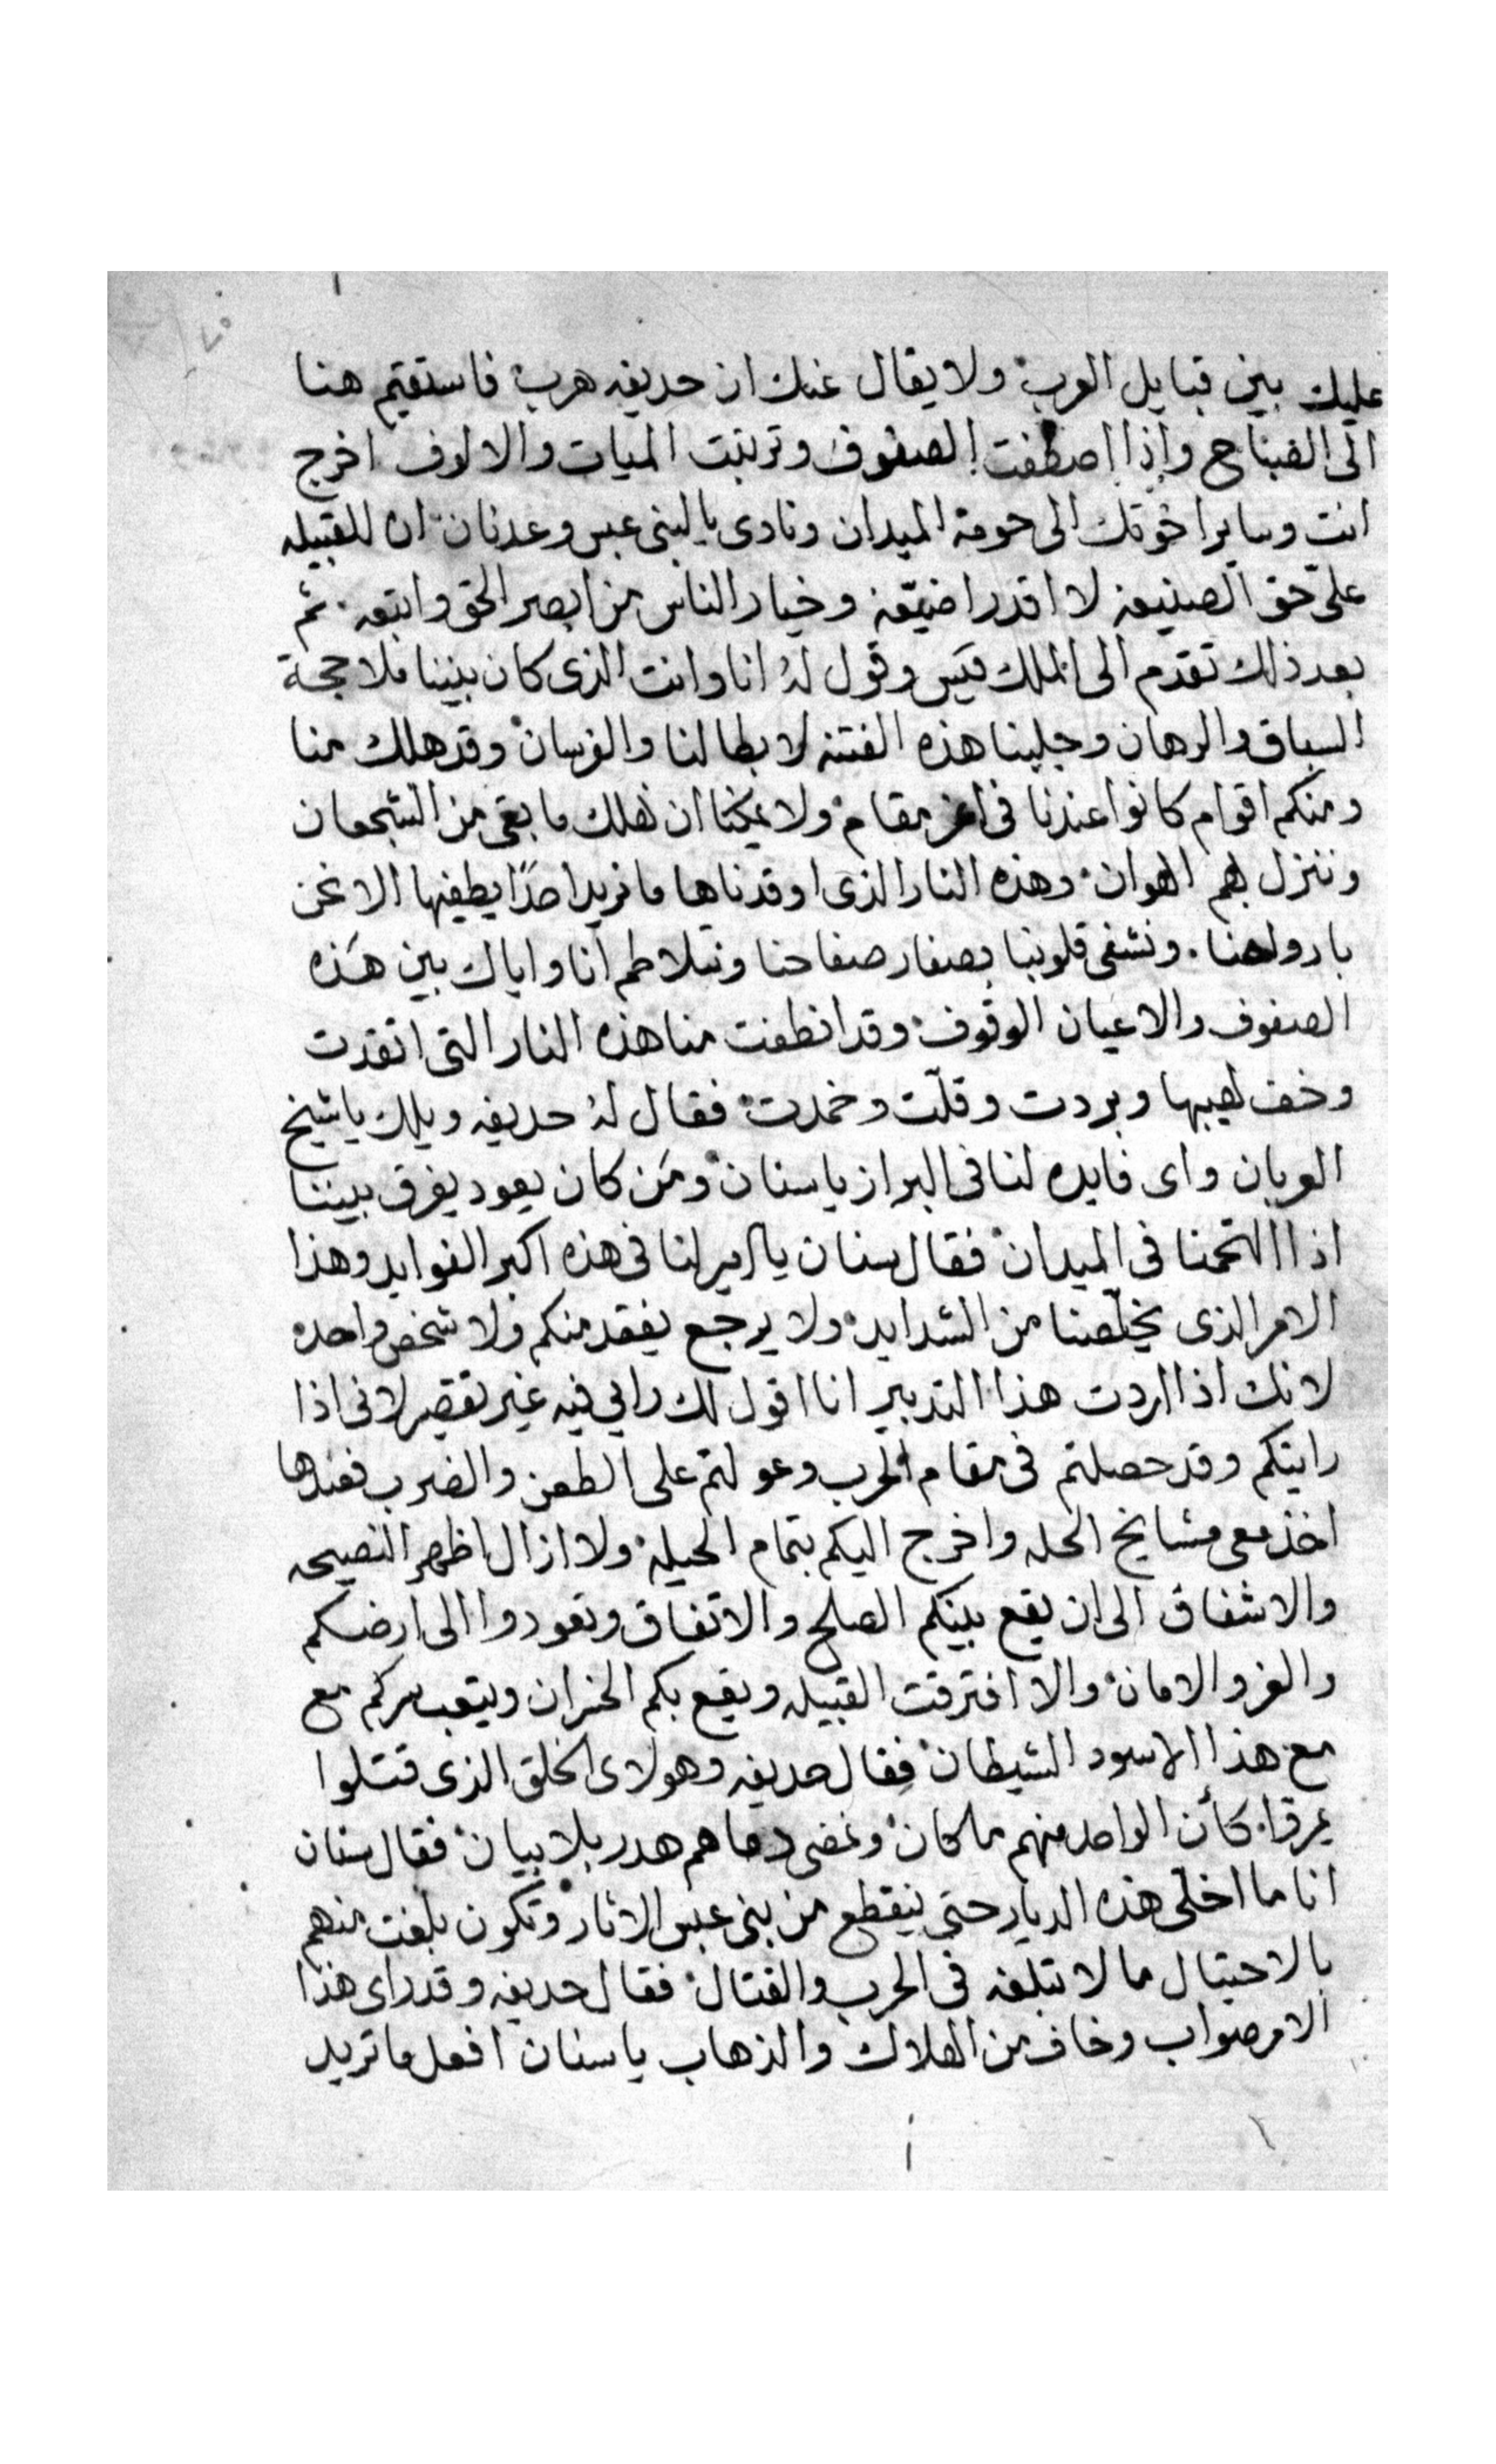 عليك بين قبايل العرب ولا يقال عنك ان حديفه هرب فاستقيم هنا
الى الصباح واذا اصطفت الصفوف وترتبت الميات والالوف اخرج
انت وساير اخوتك الى حومة الميدان ونادى يا لبنى عبس وعدنان ان للقبيله
علىّ حق الصنيعه لا اقدر اضيّعه وخيار الناس من ابصر الحق واتبعه ثم
بعد ذلك تقدم الى الملك قيس وقول له انا وانت الذى كان بيننا ملاججة
السباق والرهان وجلبنا هذه الفتنه لابطالنا والفرسان وقد هلك منا
ومنكم اقوام كانوا عندنا فى اعز مقام ولا يمكنا ان نهلك ما بقى من الشجعان
وننزل بهم الهوان وهذه النار الذى اوقدناها ما نريد احدًا يطفيها الا نحن
بارواحنا ونشفى قلوبنا بصفار صفاحنا ونتلاطم انا واياك بين هذه
الصفوف والاعيان الوقوف وقد انطفت منا هذه النار التى اتقدت
وخف لهيبها وبردت وقلّت وخمدت فقال له حديفه ويلك يا شيخ
العربان واى فايده لنا فى البراز يا سنان ومن كان يعود يفرق بيننا
اذا التحمنا فى الميدان فقال سنان يا امير لنا فى هذه اكبر الفوايد وهذا
الامر الذى يخلّصنا من الشدايد ولا يرجع يفقد منكم ولا شخص واحده
لانك اذا اردت هذا التدبير انا اقول لك رايي فيه غير تقصير لانى اذا
رايتكم وقد حصلتم فى مقام الحرب وعولتم على الطعن والضرب فعندها
اخذ معى مشايخ الحله واخرج اليكم بتمام الحيله ولا ازال اظهر النصيحه
والاشفاق الى ان يقع بينكم الصلح والاتفاق وتعودوا الى ارضكم
والعز والامان والا افترقت القبيله ويقع بكم الخسران ويتعب سركم مع
مع هذا الاسود الشيطان فقال حديفه وهولاى الخلق الذى قتلوا
بمرقا كأن الواحد منهم ما كان وتمضى دماهم هدر بلا بيان فقال سنان
انا ما اخلّى هذه الديار حتى ينقطع من بنى عبس الاثار وتكون بلغت منهم
بالاحتيال ما لا تبلغه فى الحرب والقتال فقال حديفه وقد راى هذا
الامر صواب وخاف من الهلاك والذهاب يا سنان افعل ما تريد